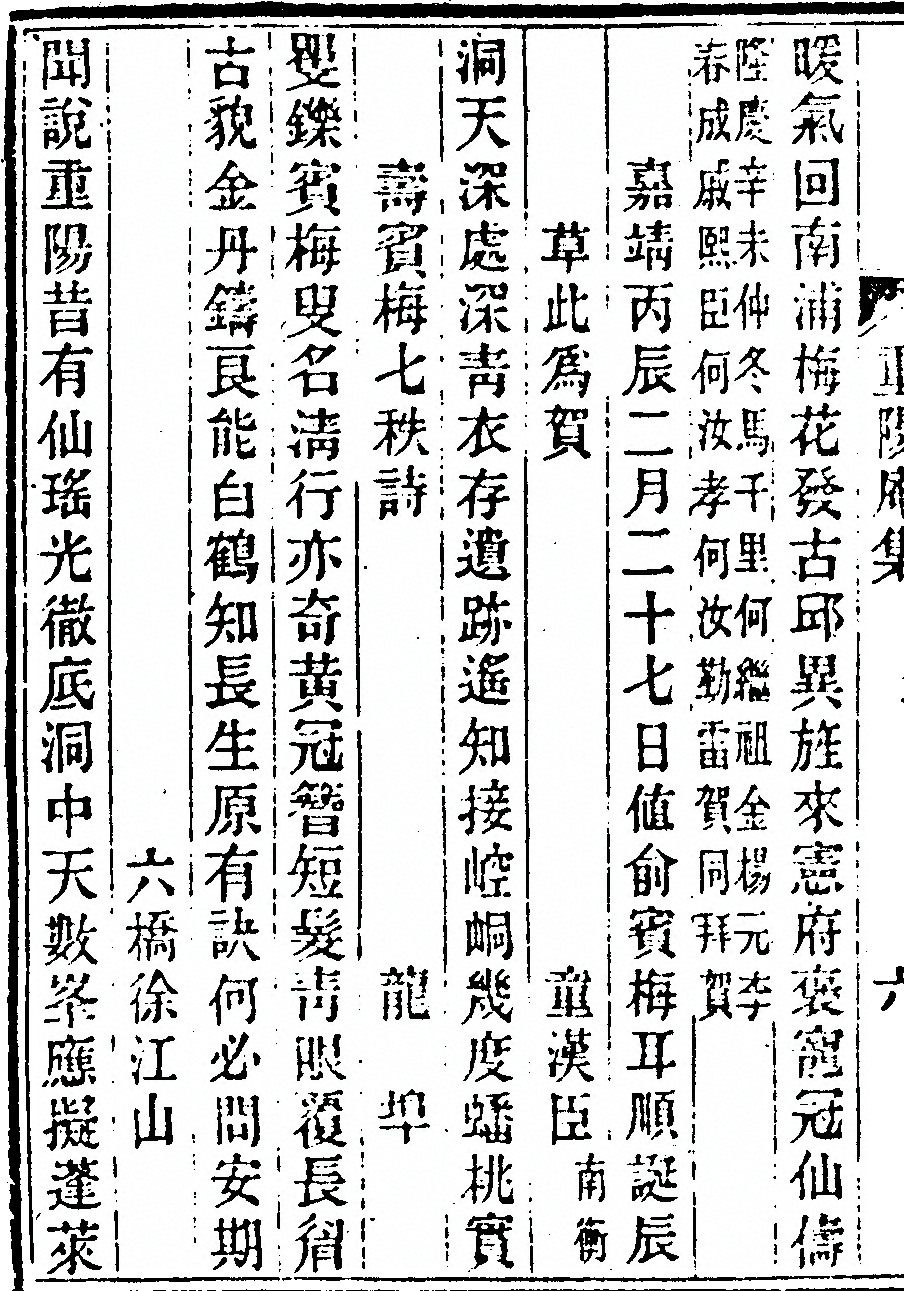 重陽庵集
六
暖氣回南浦梅花發古邱異旌來憲府褒寵冠仙儔
隆慶辛未仲冬馬千里何繼祖金楊元李
春成戚熙臣何汝孝何汝勤雷賀同拜賀
嘉靖丙辰二月二十七日値俞賓梅耳順誕辰
草此爲賀 童漢臣南衡
洞天深處深靑衣存遺跡遙知接崆峒幾度蟠桃實
壽賓梅七秩詩 龍 埠
矍鑠賓梅叟名淸行亦奇黃冠簪短髮靑眼覆長眉
古貌金丹鑄艮能白鶴知長生原有訣何必問安期
六橋徐江山
聞說重陽昔有仙瑤光徹底洞中天數峯應擬蓬萊